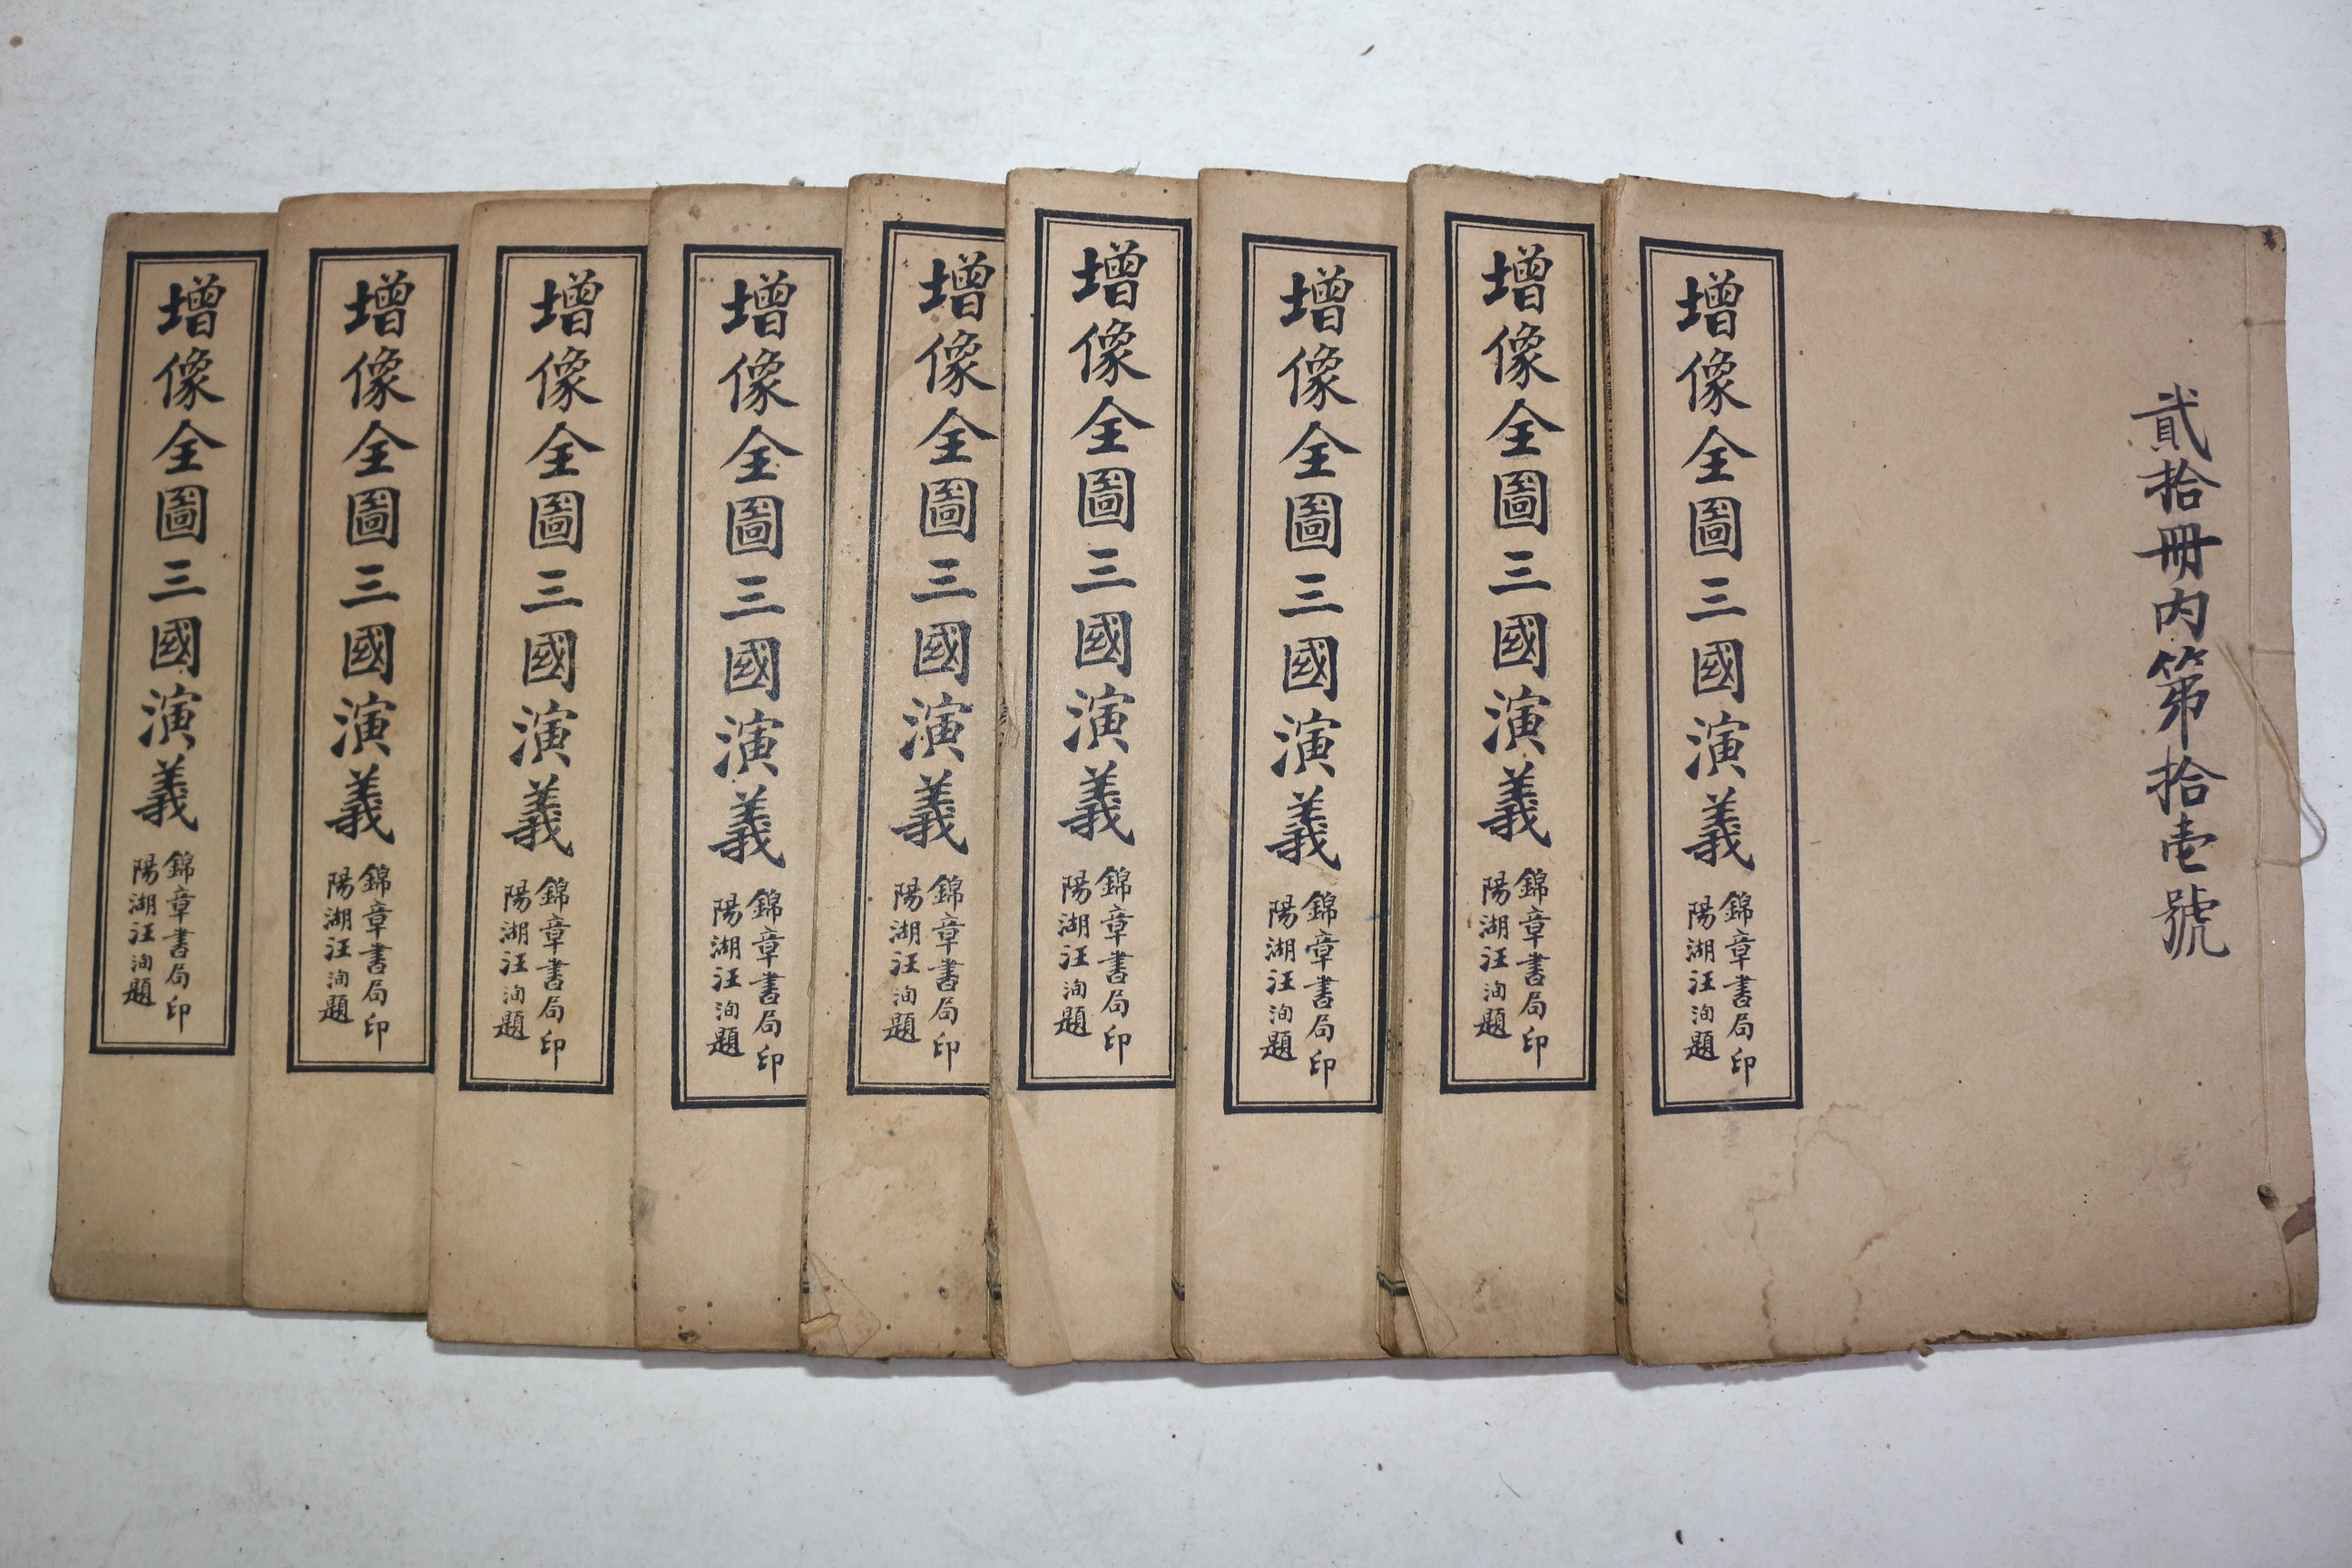 貳拾冊内第拾壱號
增像全圖三國演義
錦章書局印
陽湖汪洵題
增像全圖三國演義
錦章書局印
陽湖汪洵題
增像全圖三國演義
錦章書局印
陽湖汪洵題
增像全圖三國演義
錦章書局印
陽湖汪洵題
增像全圖三國演義
錦章書局印
陽湖汪洵題
增像全圖三國演義
錦章書局印
陽湖汪洵題
增像全圖三國演義
錦章書局印
陽湖汪洵題
增像全圖三國演義
錦章書局印
陽湖汪洵題
增像全圖三國演義
錦章書局印
陽湖汪洵題